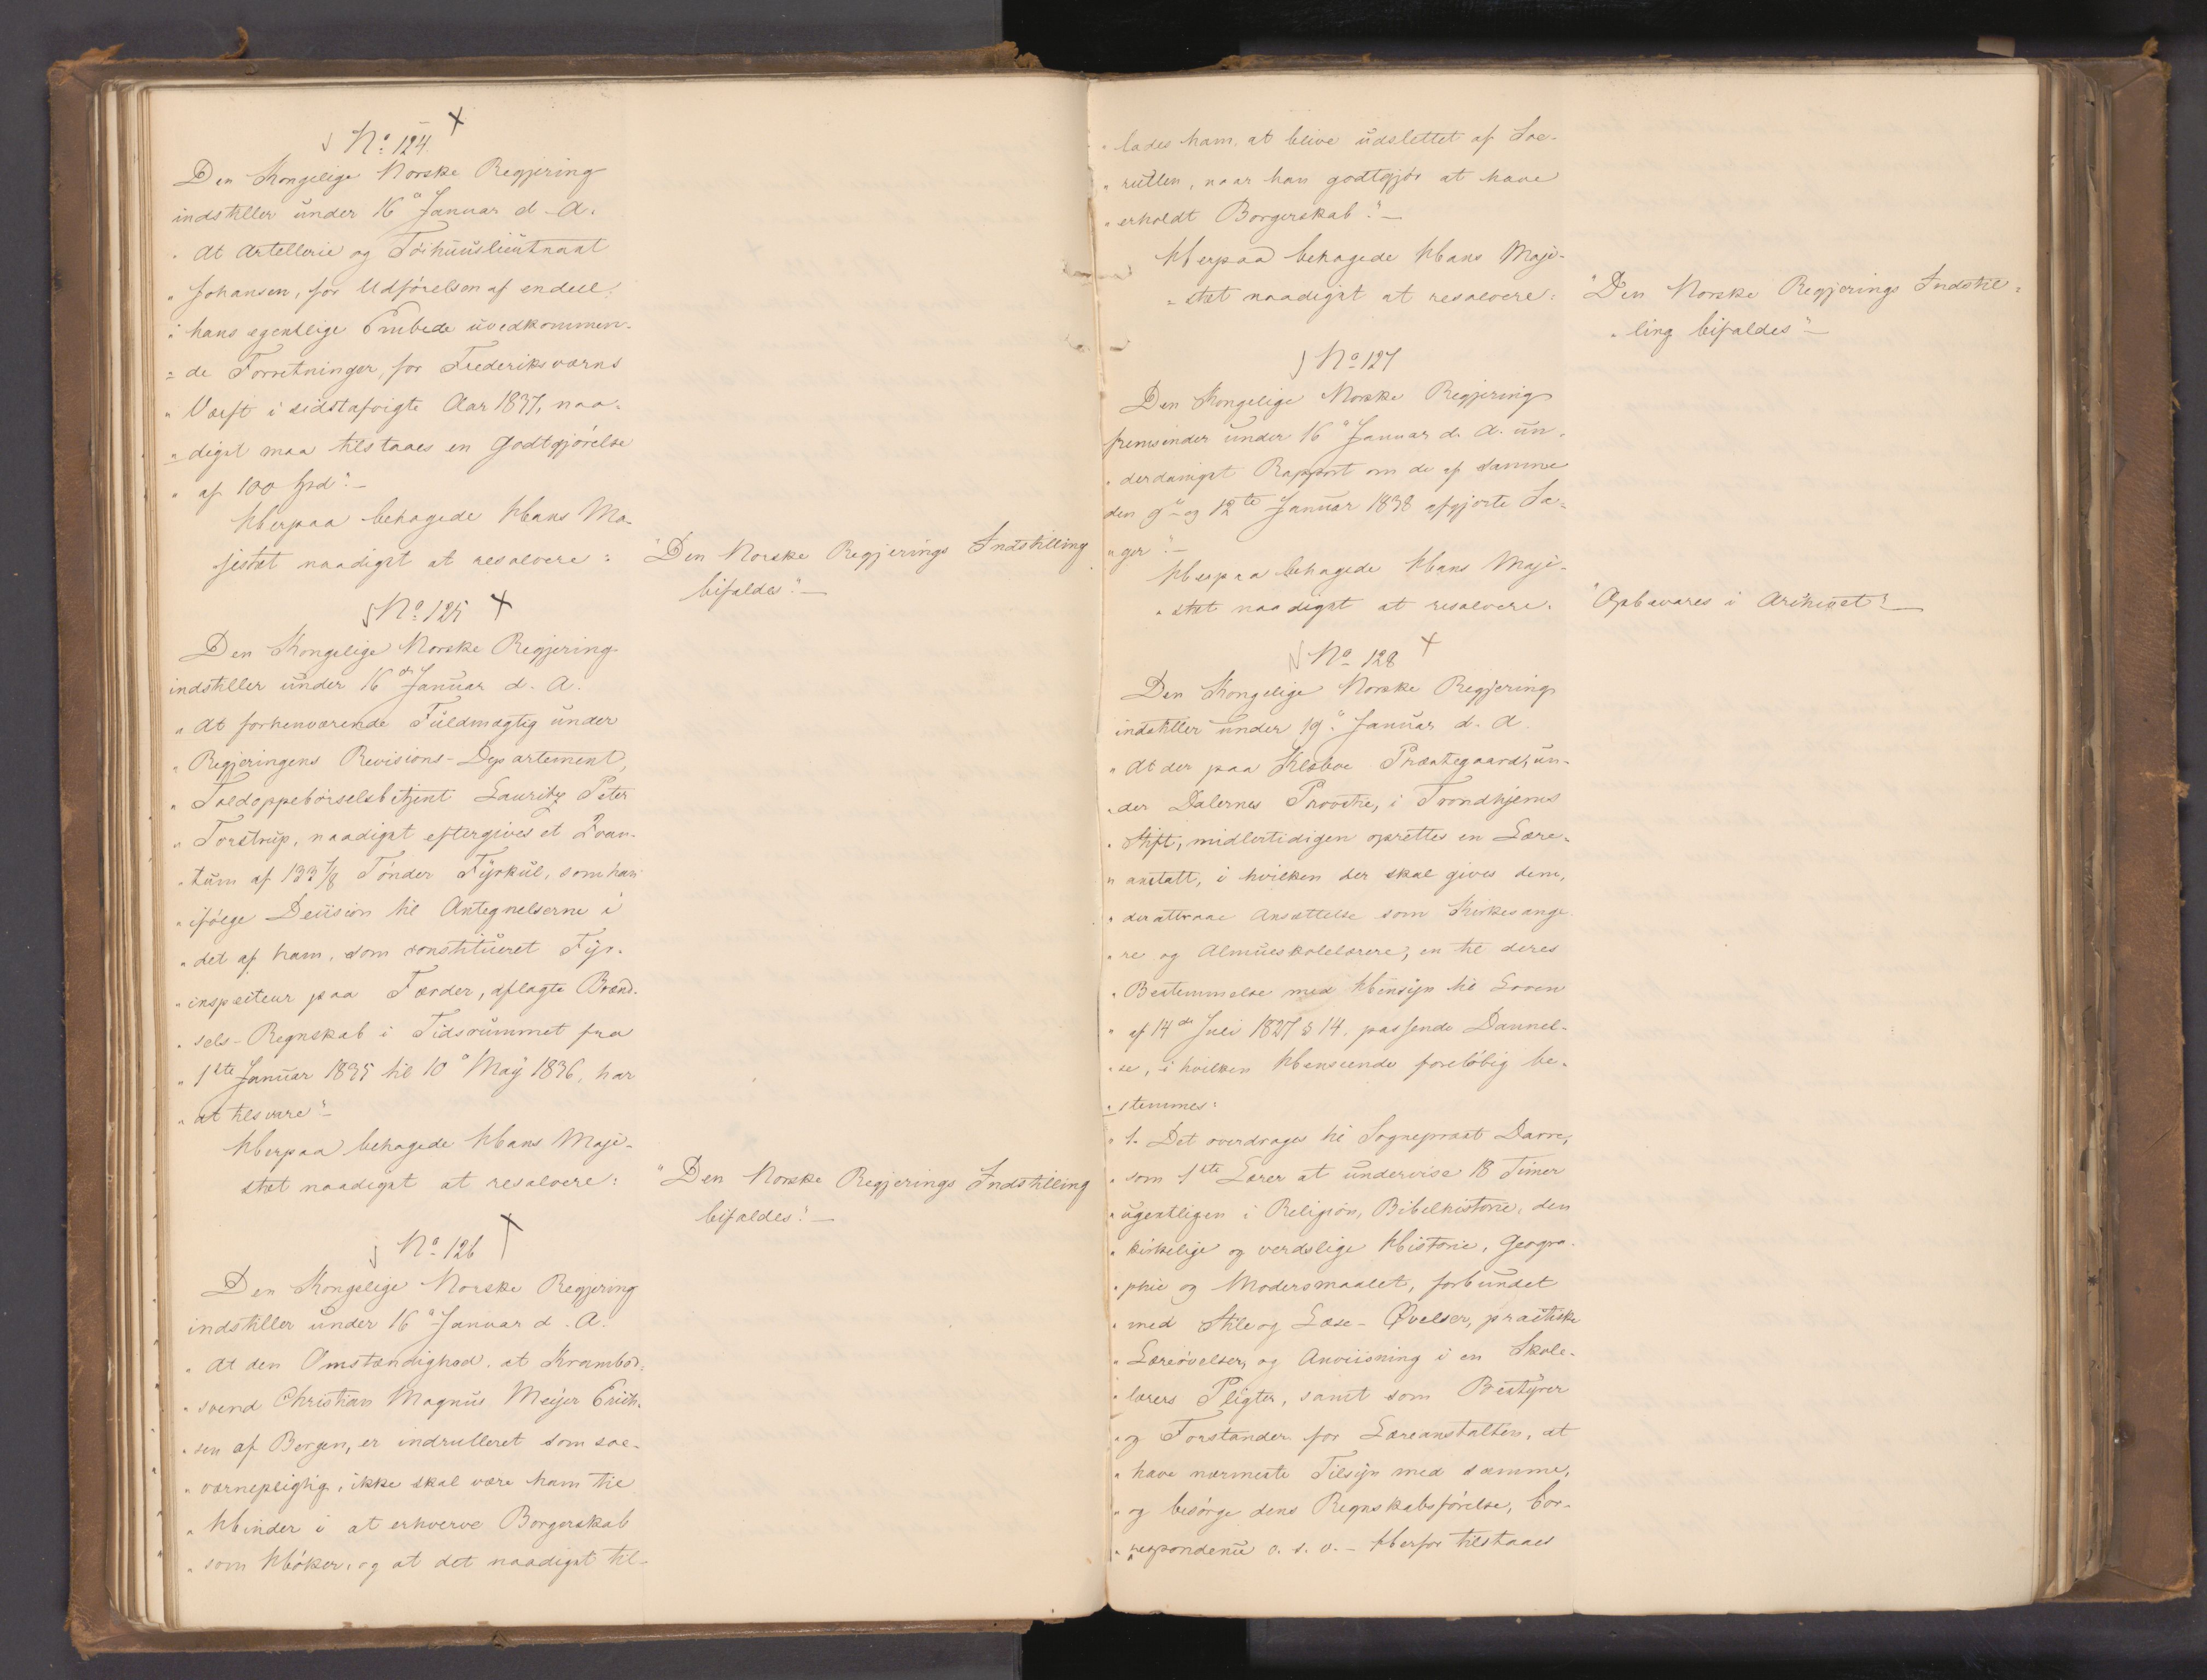 No 124.
Den Kongelige Norske Regjering
indstiller under 16 Januar d. A.
" At Artellerie og Töihuuslieutnant
" Johansen, for Udförelsen af endeel
" hans egentlige Embede uvedkommen-
" de Forretninger, for Frederiksværns
" Værft i sidstafvigte Aar 1837, naa-
" digst maa tilstaaes en Godtgjörelse
" af 100 Spd".-
Herpaa behagede Hans Ma-
jestæt naadigst at resolvere:
"Den Norske Regjerings Indstilling
bifaldes".-
No 125
Den Kongelige Norske Regjering
indstiller under 16 Januar d. A.
" At forhenværende Fuldmægtig under
" Regjeringens Revisions-Departement,
" Toldoppebörselsbetjent Lauritz Peter
" Torstrup, naadigst eftergives et Qvan-
" tum af 133 7/8 Tönder Fyrkul, som han
" ifölge Decision til Antegnelserne i
" det af ham, som constitueret Fyr-
" inspecteur paa Færder, aflagte Brænd-
" sels-Regnskab i Tidsrummet fra
" 1ste Januar 1835 til 10 May 1836, har
" at tilsvare"-
Herpaa behagede Hans Maje-
stæt naadigst at resolvere:
"Den Norske Regjerings Indstilling
bifaldes".-
No 126
Den Kongelige Norske Regjering
indstiller under 16 Januar d. A.
" At den Omstændighed, at Krambod-
" svend Christian Magnus Meyer Erich-
" sen af Bergen, er indrulleret som söe-
" værnepligtig, ikke skal være ham til
" Hinder i at erhverve Borgerskab
" som Höker, og at det naadigst til-
" lades ham, at blive udslettet af Söe-
" rullen, naar han godtgjör at have
" erholdt Borgerskab".-
Herpaa behagede Hans Maje-
" stæt naadigst at resolvere:
"Den Norske Regjerings Indstil-
" ling bifaldes"-
No 127
Den Kongelige Norske Regjering
fremsender under 16 Januar d. A. un-
" derdanigst Rapport om de af samme
den 9 og 12te Januar 1838 afgjorte Sa-
" ger".-
Herpaa behagede Hans Maje-
" stæt naadigst at resolvere.
"Opbevares i Archivet".-
No 128
Den Kongelige Norske Regjering
indstiller under 19 Januar d. A.
" At der paa Klæboe Præstegaard, un-
" der Dalernes Provstie, i Trondhjems
" Stift, midlertidigen oprettes en Lære-
" anstatt, i hvilken der skal gives dem,
" der attraae Ansættelse som Kirkesange-
" re og Almueskolelærere, en til deres
" Bestemmelse med Hensyn til Loven
" af 14de Juli 1827 § 14. passende Dannel-
" se, i hvilken Henseende forelöbig be-
" stemmes:
" 1. Det overdrages til Sognepræst Darre,
" som 1ste Lærer at undervise 18 Timer
" ugentligen i Religion, Bibelhistorie, den
" kirkelige og verdslige Historie, Geogra-
" phie og Modersmaalet, forbundet
" med Stile og Læse-Øvelser, practiske
" Læreövelser, og Anviisning i en Skole-
" lærers Pligter, samt som Bestyrer
" og Forstander for Læreanstalten, at
" have nærmeste Tilsyn med samme,
" og besörge dens Regnskabsförelse, Cor-
" respondence o. s. v. - Herfor tilstaaes